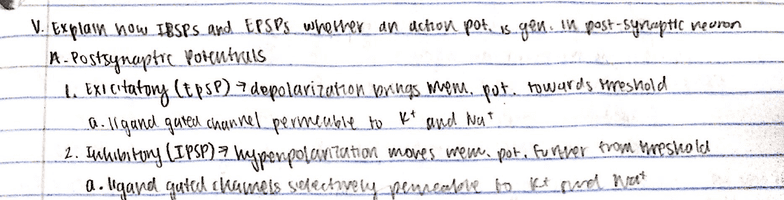 V. Explain how IBSPs and EPSPs whether an action pot. is gen. in post-synaptic neuron
A. Postsynaptic Potentials
1. Exicitatory (EPSP) → depolarization brings mem. pot. towards threshold
a. ligand gated channel permeable to K⁺ and Na⁺
2. Inhibitory (IPSP) → hyperpolarization moves mem. pot. further from threshold
a. ligand gated channels selectively permeable to K+ and Na+